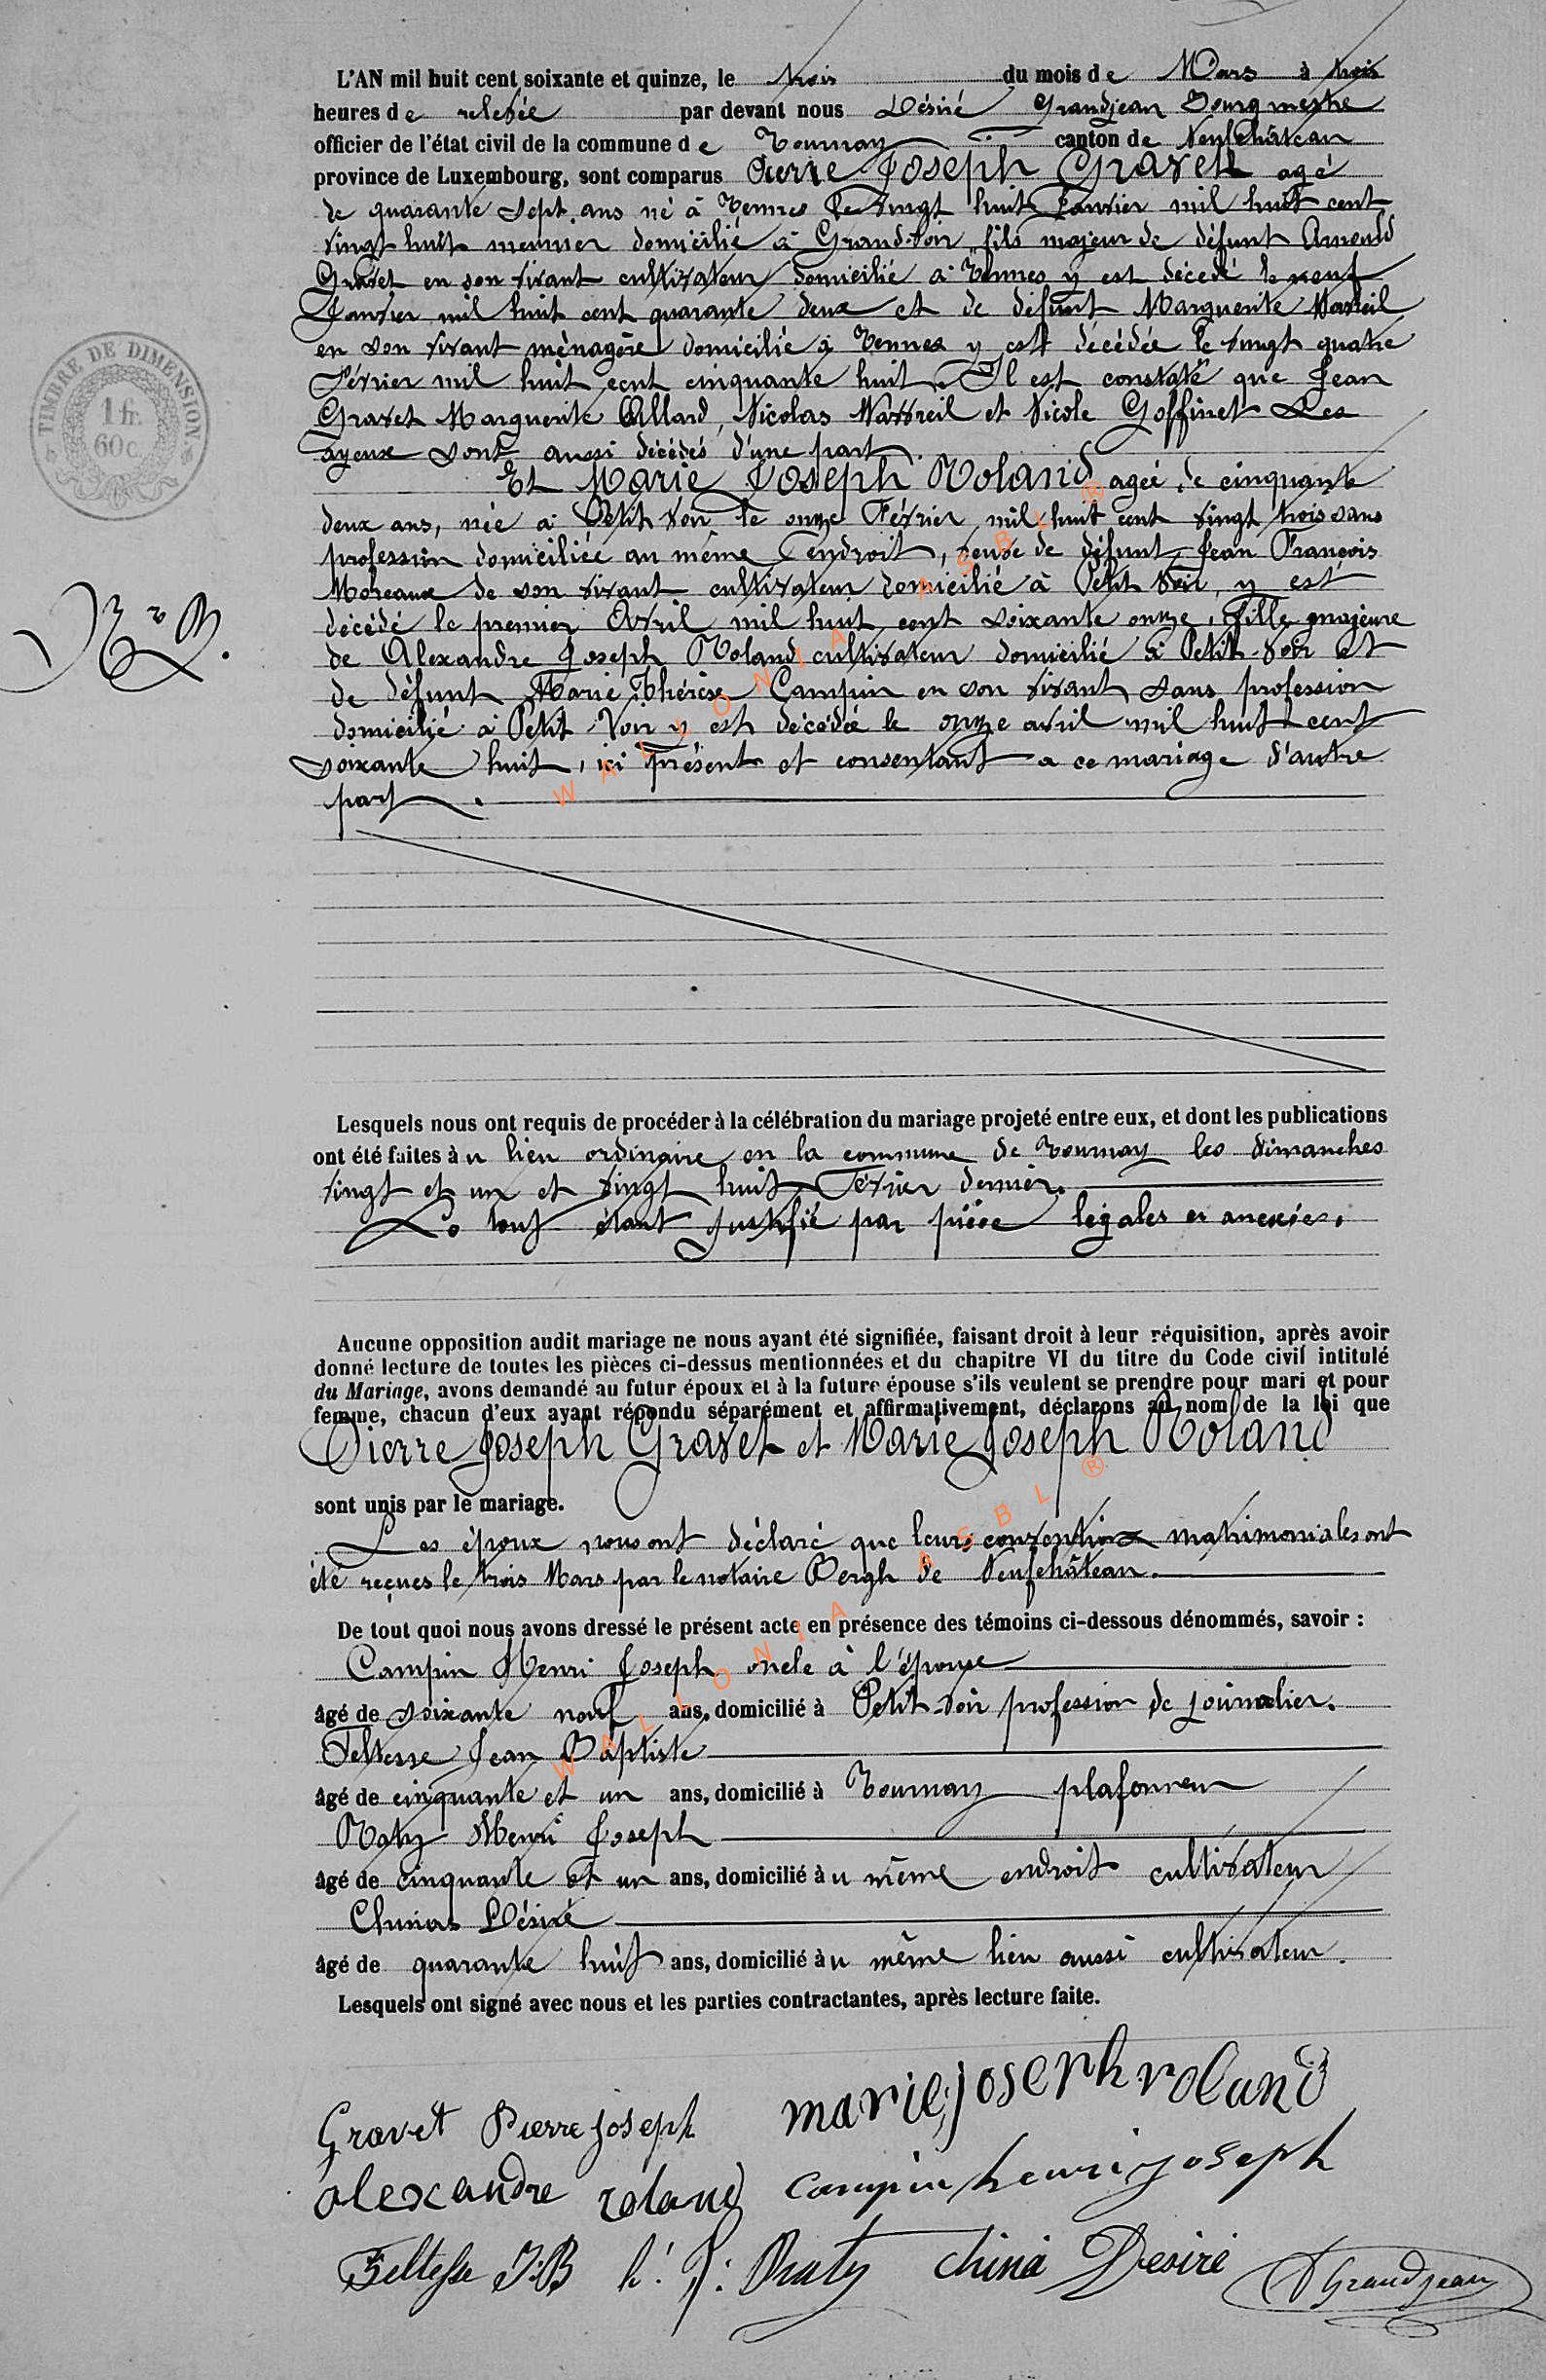 L'AN mil huit cent soixante et quinze, le trois du mois de Mars à trois
heures de relevée par devant nous Désiré Grandjean Bourgmestre
officier de l'état civil de la commune de Tournay canton de Neufchâteau
province de Luxembourg, sont comparus Pierre Joseph Gravet agé
de quarante sept ans né à Vennes le vingt huit Janvier mil huit cent
vingt huit meunier domicilié à Grand-Voir fils majeur de défunt Arnould
Gravet en son vivant cultivateur domicilié à Vennes y est décédé le neuf
Janvier mil huit cent quarante deux et de défunt Marguerite
en son vivant ménagère domicilié à Vennes y est décédée le vingt quatre
Février mil huit cent cinquante huit. Il est constaté que Jean
Gravet Marguerite Allard, Nicolas et Nicole Goffinet Les
ayeux sont aussi décédés d'une part.
Et Marie Joseph Roland agée de cinquante
deux ans, née à Petit voir le onze Février mil huit cent vingt trois sans
profession domiciliée au même endroit, veuve de défunt Jean François
Moreaux de son vivant cultivateur domicilié à Petit Voir, y est
décédé le premier Avril mil huit cent soixante onze, fille majeure
de Alexandre Joseph Roland cultivateur domicilié à Petit-voir et
de défunt Marie Thérèse Campin en son vivant sans profession
domicilié à Petit Voir y est décédée le onze avril mil huit cent
soixante huit, ici présent et consentant a ce mariage d'autre
part.
TIMBRE DE DIMENSION
1 fr.
60 c.
Lesquels nous ont requis de procéder à la célébration du mariage projeté entre eux, et dont les publications
ont été faites au lieu ordinaire en la commune de Tournay les dimanches
vingt et un et vingt huit Février dernier.
Le tout étant justifié par pièce légales et anexées.
Aucune opposition audit mariage ne nous ayant été signifiée, faisant droit à leur réquisition, après avoir
donné lecture de toutes les pièces ci-dessus mentionnées et du chapitre VI du titre du Code civil intitulé
du Mariage, avons demandé au futur époux et à la future épouse s'ils veulent se prendre pour mari et pour
femme, chacun d'eux ayant répondu séparément et affirmativement, déclarons au nom de la loi que
Pierre Joseph Gravet et Marie Joseph Roland
sont unis par le mariage.
Les époux nous ont déclaré que leurs conventions matrimoniales ont
été reçues le trois Mars par le notaire Bergh de Neufchâteau.
De tout quoi nous avons dressé le présent acte en présence des témoins ci-dessous dénommés, savoir :
Campin Henri Joseph oncle à l'épouse
âgé de soixante neuf ans, domicilié à Petit-voir profession de journalier.
Feltesse Jean Baptiste
âgé de cinquante et un ans, domicilié à Tournay plafonneur
Roty Henri Joseph
âgé de cinquante et un ans, domicilié au même endroit cultivateur
Désiré
âgé de quarante huit ans, domicilié au même lieu aussi cultivateur.
Lesquels ont signé avec nous et les parties contractantes, après lecture faite.
Gravet Pierre joseph marie joseph roland
alexandre roland campin henri joseph
Feltesse J:B h. J: china Desiré DGrandjean
WALLONIA ASBL ®
WALLONIA ASBL ®